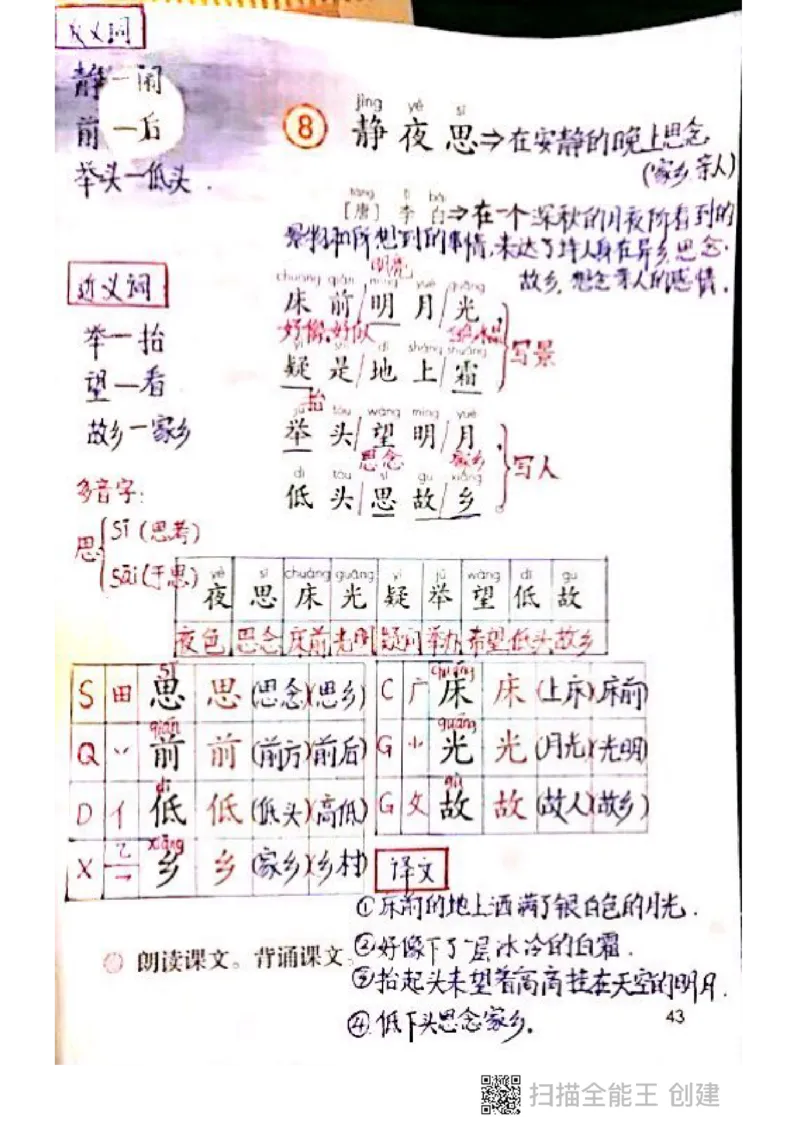 反义词
静—闹
前—后
举头—低头.
jìng yè sī
8 静夜思⇒在安静的晚上思念
(家乡亲人)
táng lǐ bái
[唐] 李白⇒在一个深秋的月夜所看到的
景物和所想到的事情,表达了诗人身在异乡,思念
故乡,想念亲人的感情.
近义词
举—抬
望—看
故乡—家乡
明亮
chuáng qián míng yuè guāng
床前/明月/光,
好像,好似
yí shì dì shàng shuāng
疑是/地上/霜
写景
抬
jǔ tóu wàng míng yuè
举头/望明/月,
思念 家乡
dī tóu sī gù xiāng
低头/思故/乡
写人
多音字:
思
sī(思考)
sāi(于思)
yè sī chuáng guāng yí jǔ wàng dī gù
夜 思 床 光 疑 举 望 低 故
夜色 思念 床前 光明 疑问 举办 希望 低头 故乡
sī
S 田 思 思 (思念)(思乡)
qián
Q 丷 前 前 (前方)(前后)
dī
D 亻 低 低 (低头)(高低)
xiāng
X 乡 乡 (家乡)(乡村)
chuáng
C 广 床 床 (上床)(床前)
guāng
G ⺌ 光 光 (月光)(光明)
gù
G 攵 故 故 (故人)(故乡)
译文
①床前的地上洒满了银白色的月光.
②好像下了一层冰冷的白霜.
③抬起头来望着高高挂在天空的明月.
④低下头思念家乡.
朗读课文。背诵课文。
43
扫描全能王 创建